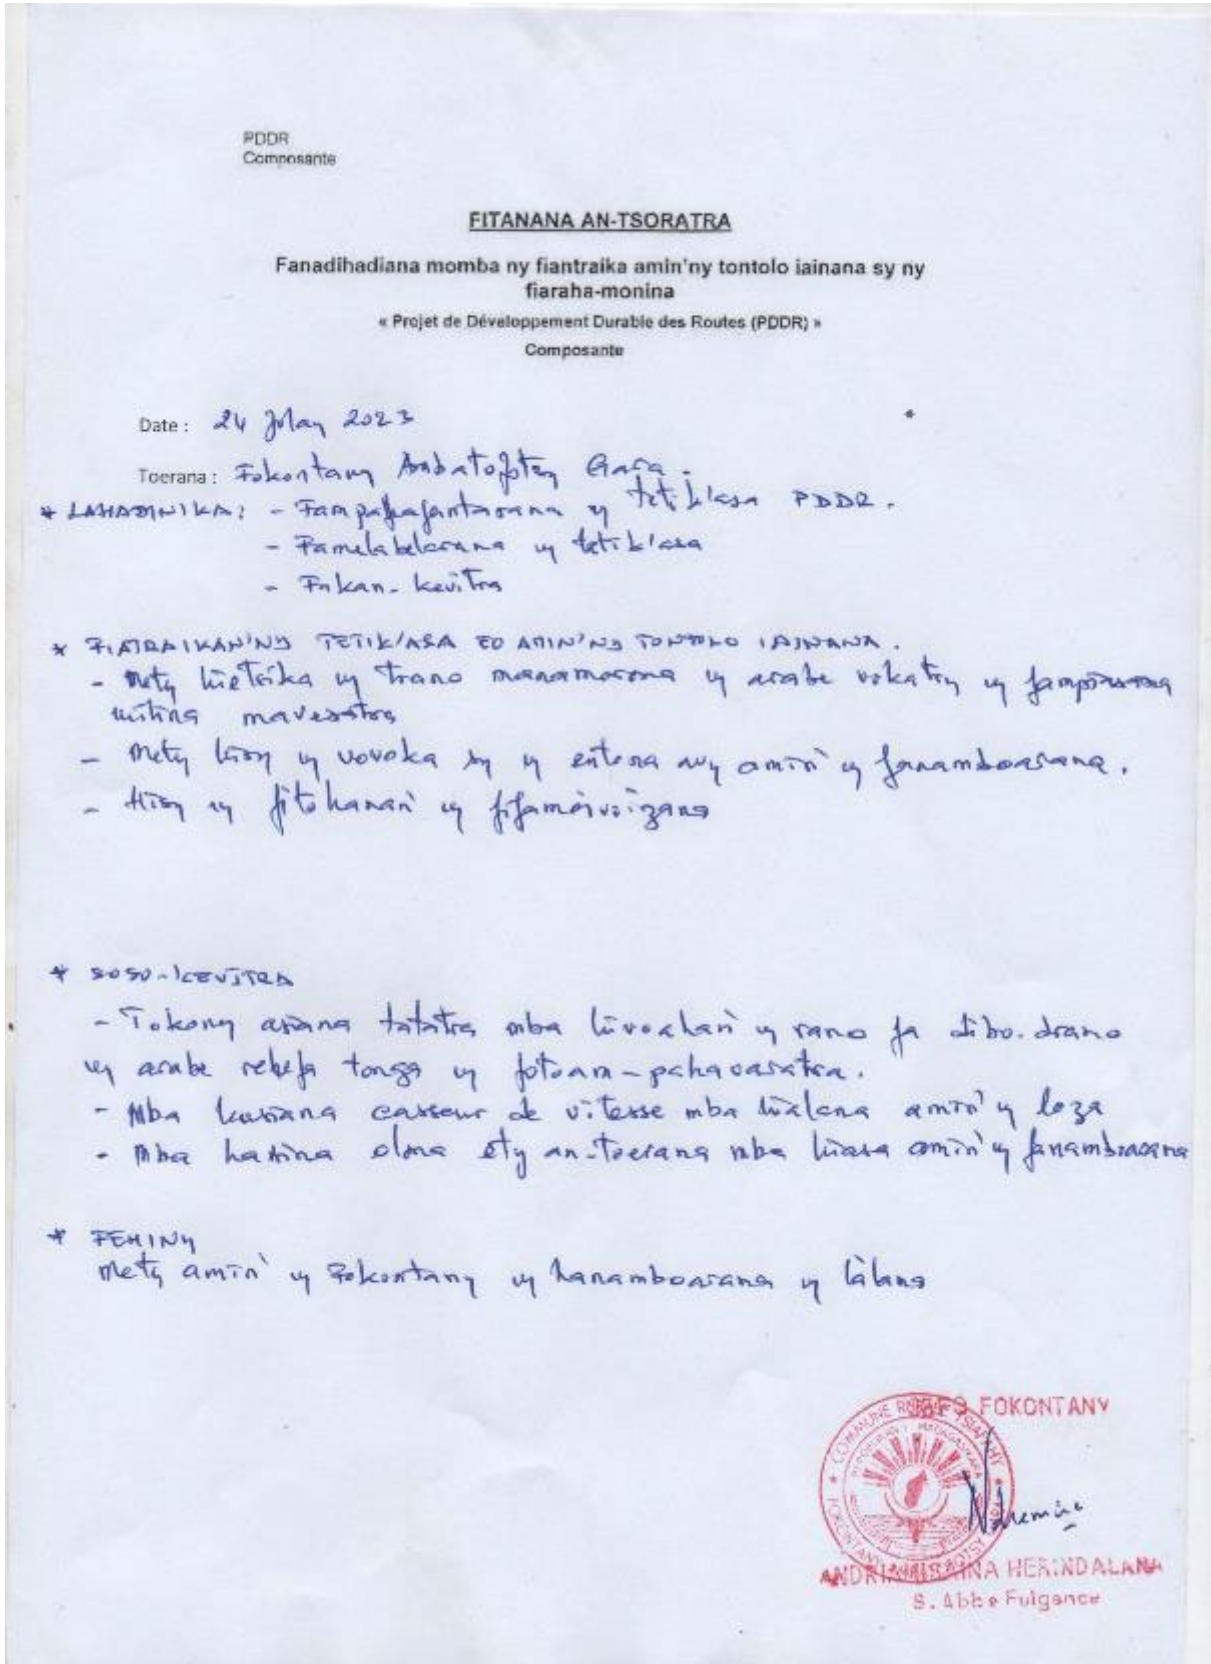 PDDR
Composante
FITANANA AN-TSORATRA
Fanadihadiana momba ny fiantraika amin'ny tontolo iainana sy ny
fiaraha-monina
« Projet de Développement Durable des Routes (PDDR) »
Composante
Date : 24 Jolay 2023
Toerana : Fokontany Ambatofotsy Gara.
* LAHADINIKA: - Fampahafantarana ny tetik'asa PDDR.
- Famelabelarana ny tetik'asa
- Fakan-kevitra
* FIATRAIKAN'NY TETIK'ASA EO AMIN'NY TONTOLO IAINANA.
- Mety hietsika ny trano manamorona ny arabe vokatry ny
milina mavesatra
- Mety hisy ny vovoka sy ny entona avy amin'ny fanamboarana.
- Hisy ny fitohanan'ny fifamoivoizana
* SOSO-KEVITRA
- Tokony asiana tatatra mba hivoahan'ny rano fa dibo-drano
ny arabe rehefa tonga ny fotoam-pahavaratra.
- Mba hasiana casseur de vitesse mba hialana amin'ny loza
- Mba haka olona ety an-toerana mba hiasa amin'ny fanamboarana
* FEHINY
Mety amin'ny Fokontany ny hanamboarana ny làlana
CHEF FOKONTANY
COMMUNE RURALE TSIAFAHY
REPOBLIKAN'I MADAGASIKARA
FOKONTANY
HERINDALANA
S. Abbe Fulgence